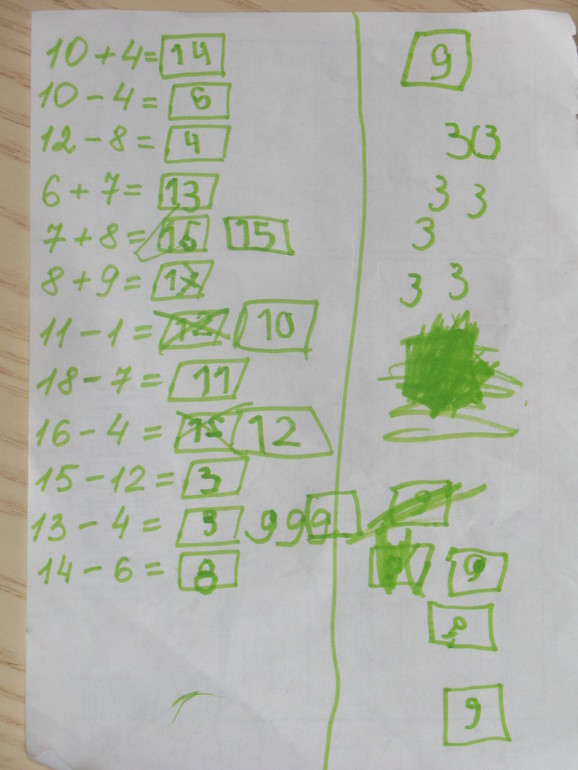 10 + 4 = 14
10 - 4 = 6
12 - 8 = 4
6 + 7 = 13
7 + 8 = 15 15
8 + 9 = 17
11 - 1 = 12 10
18 - 7 = 11
16 - 4 = 15 12
15 - 12 = 3
13 - 4 = 9 9 9 9
14 - 6 = 8
9
3 3
3 3
3
3 3
9
9
9